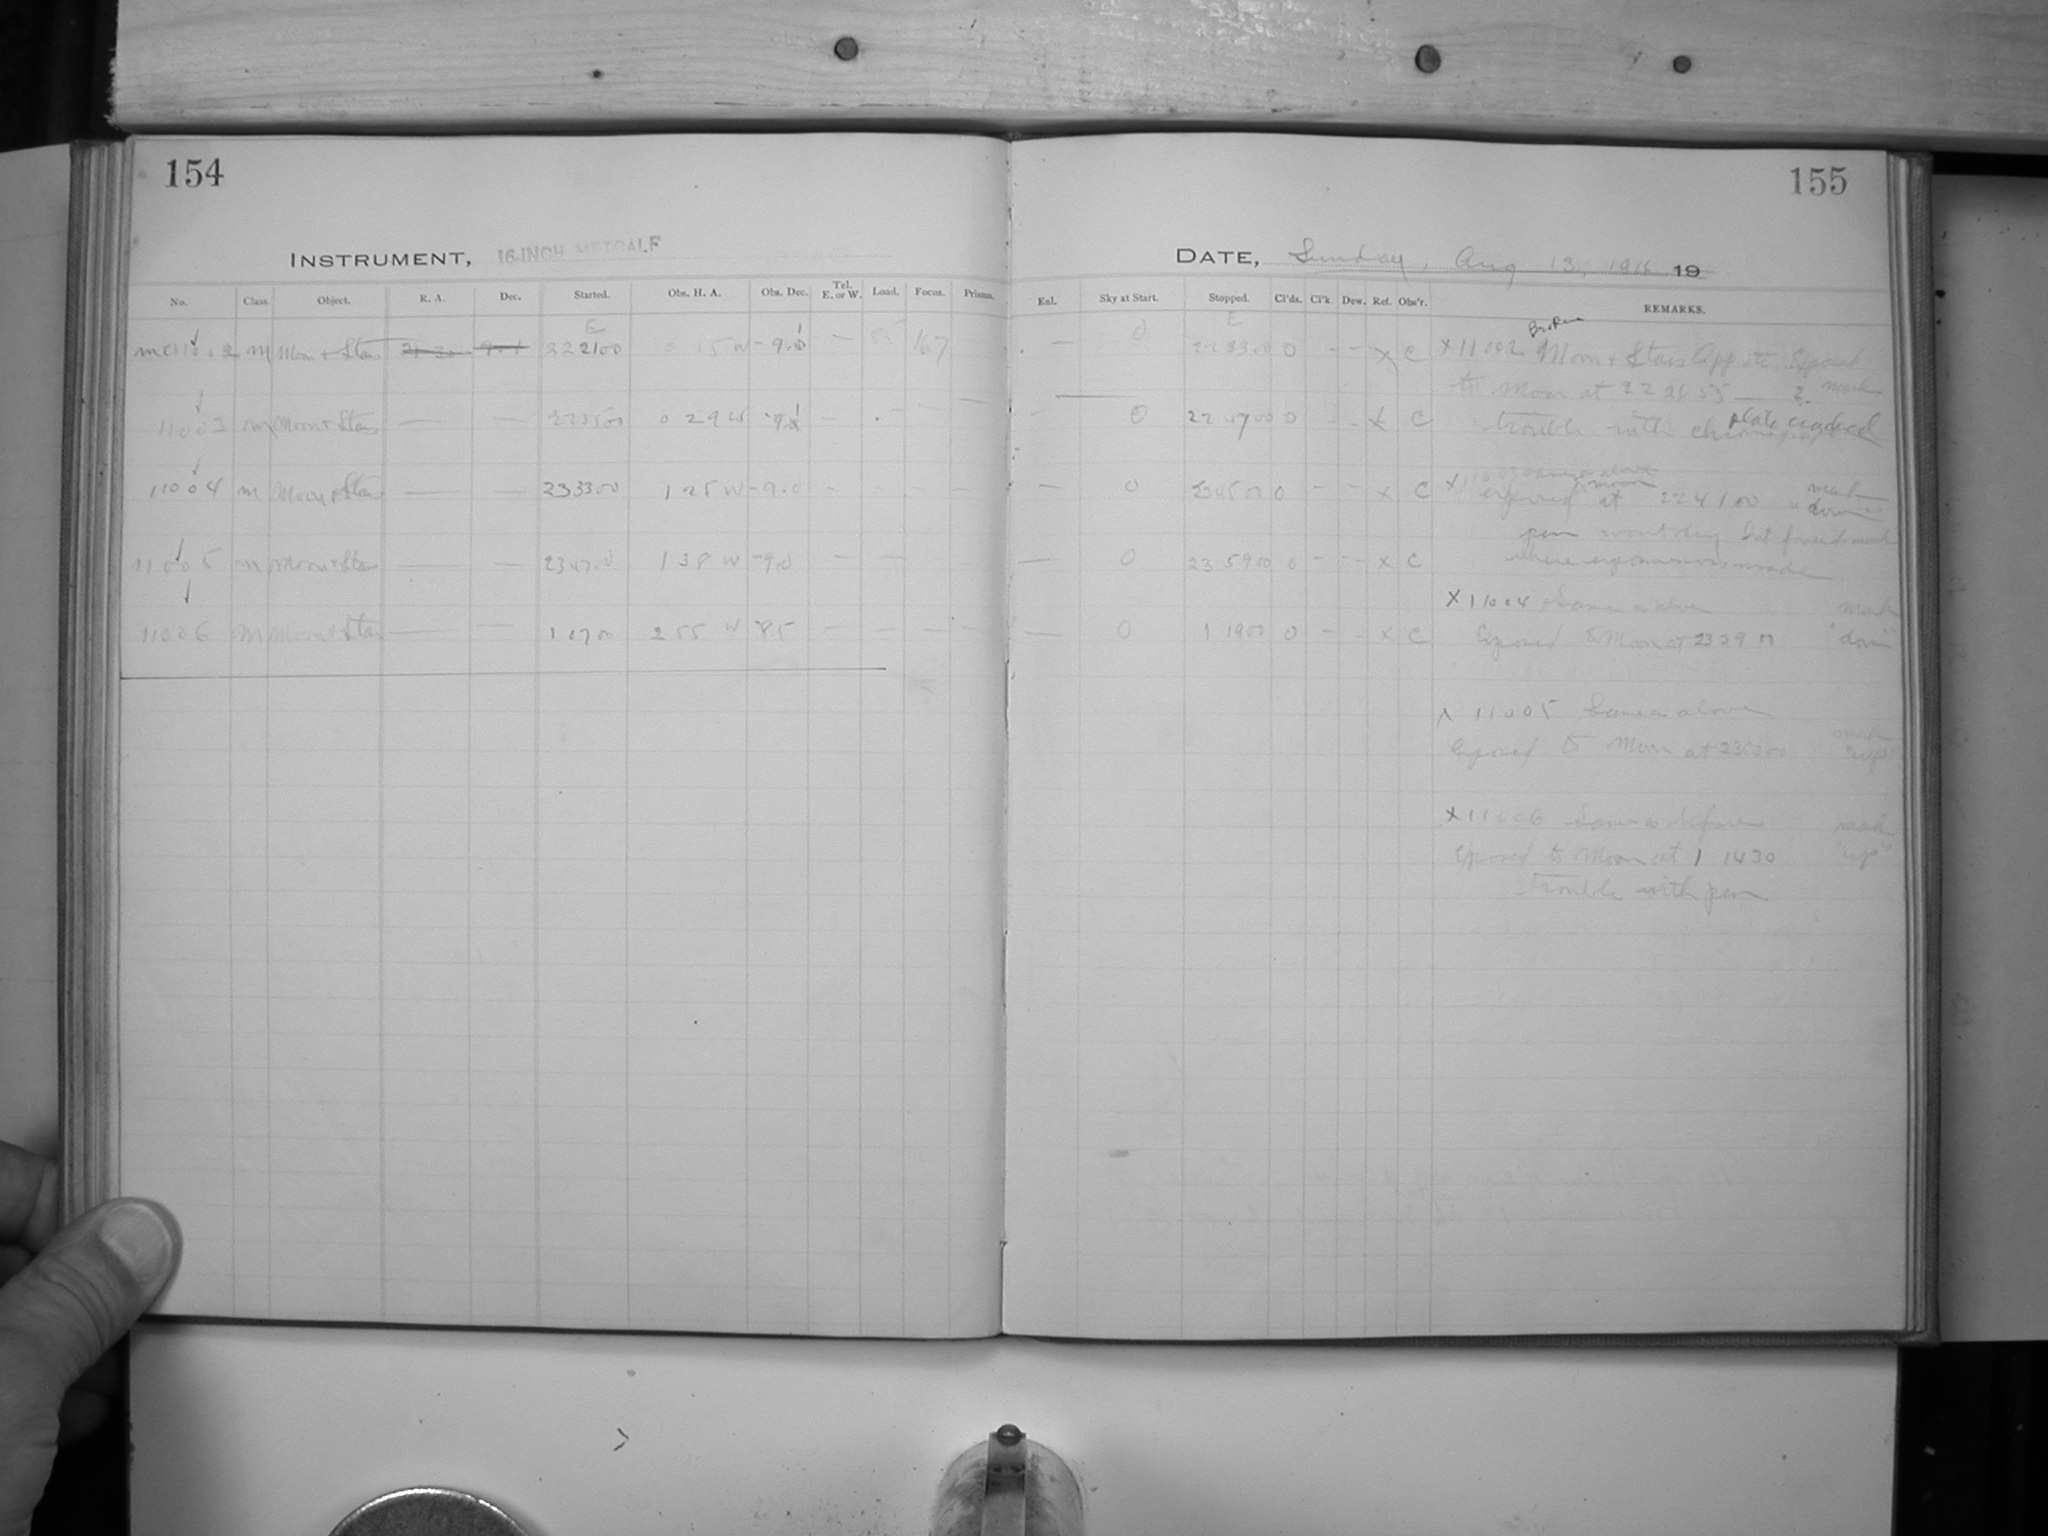 154
155
INSTRUMENT, 16-INCH METCALF
DATE, Sunday, Aug 13, 1916 19
No. Class. Object. R. A. Dec. Started. Obs. H. A. Obs. Dec. Tel. E. or W. Load. Focus. Prisms.
Enl. Sky at Start. Stopped. Cl'ds. Cl'k. Dew. Ref. Obs'r. REMARKS.
E
E
Broken
mc11002 M Moon + Stars 222100 0 15 W -9.0 — 85 167
— 0 223300 0 - - x C X11002 Moon + Stars App to Exposed
to Moon at 222655 — ? mark
11003 M Moon + Stars — — 223500 0 29 W -9.0 —
0 224700 0 - - x C trouble with plate cracked
11004 M Moon + Stars — — 233300 1 25 W -9.0 — —
— 0 234500 0 - - x C X11003 same as above
exposed to moon at 224100 mark "down"
pen went dry but found mark
where exposure was made
11005 M Moon + Stars — — 234700 1 38 W -9.0 — —
— 0 235900 0 - - x C
X11004 Same as above mark
Exposed to Moon at 233900 "down"
11006 M Moon + Stars — — 1 0700 2 55 W 85 — — — —
— 0 1 1900 0 - - x C
X 11005 Same as above mark
Exposed to Moon at 235300 "up"
X11006 Same as before mark
Exposed to Moon at 1 1430 "up"
trouble with pen